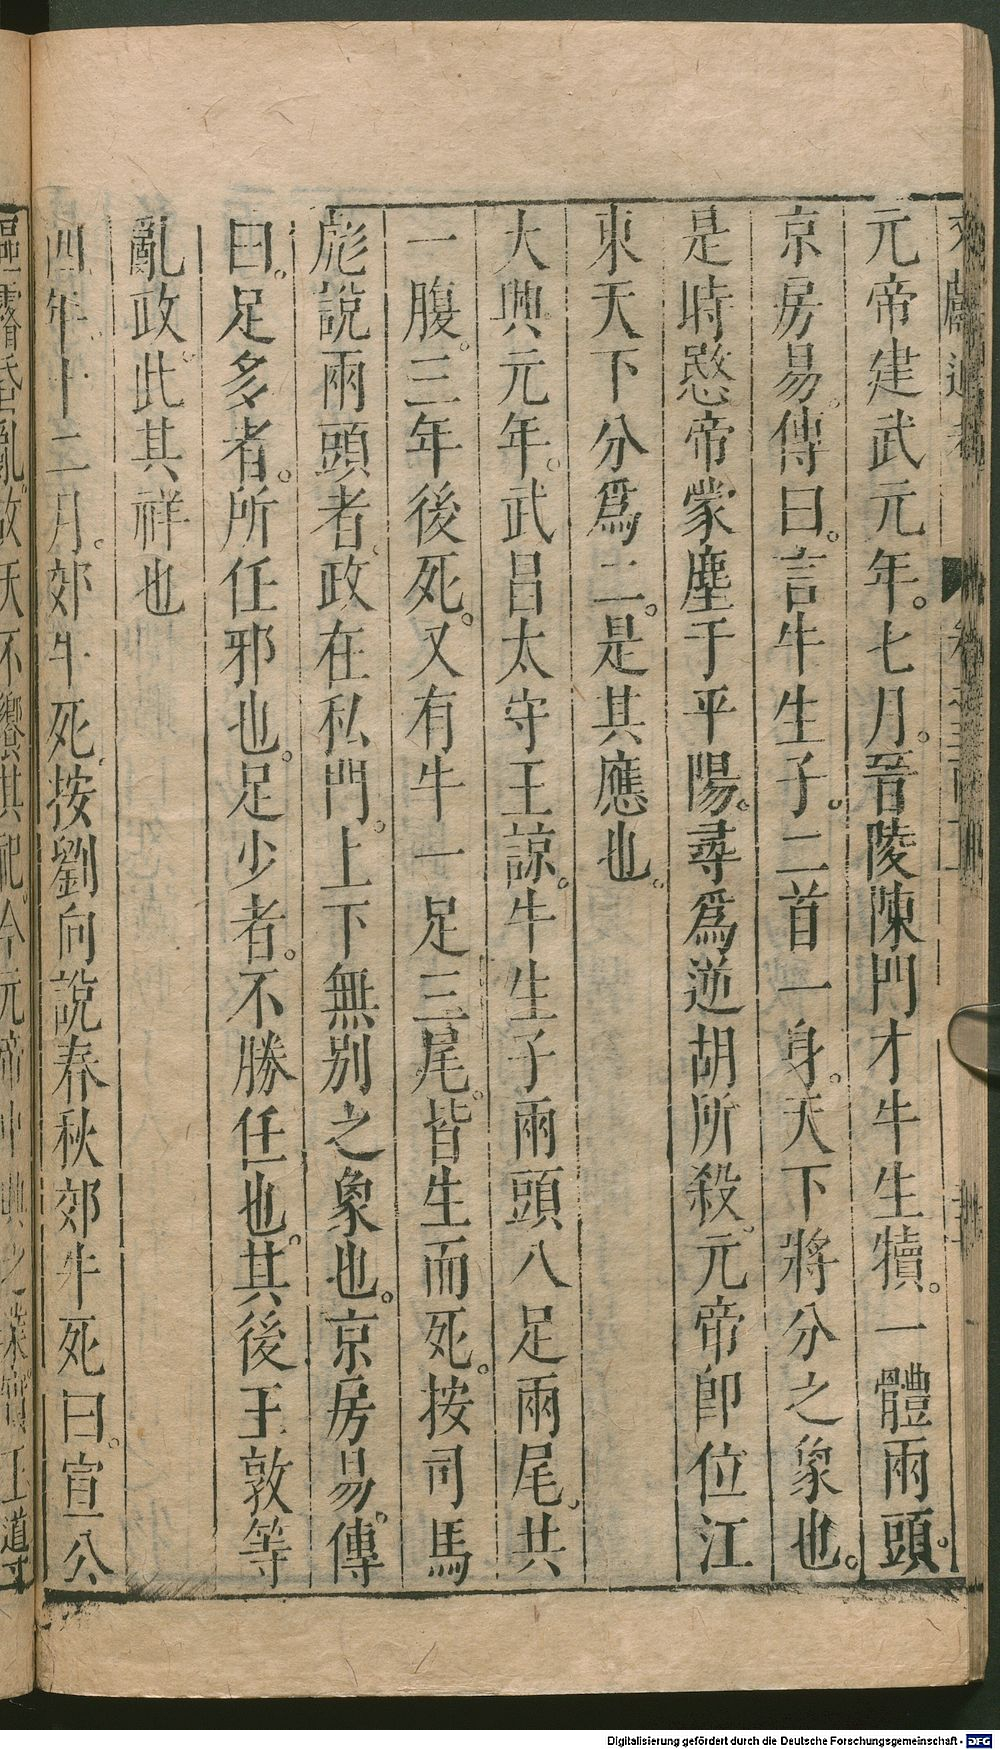 文獻通考 卷三百十一
元帝建武元年。七月。晉陵陳門才牛生犢。一體兩頭。
京房易傳曰。言牛生子。二首一身。天下將分之象也。
是時愍帝蒙塵于平陽。尋爲逆胡所殺。元帝即位江
東天下分爲二。是其應也。
大興元年。武昌太守王諒。牛生子兩頭八足兩尾。共
一腹。三年後死。又有牛一足三尾。皆生而死。按司馬
彪說兩頭者。政在私門。上下無別之象也。京房易。傳
曰。足多者。所任邪也。足少者。不勝任也。其後王敦等
亂政。此其祥也
四年十二月。郊牛死。按劉向說春秋郊牛死曰。宣公
區霿昏亂。故天不饗其祀。今元帝中興之業。實王導
Digitalisierung gefördert durch die Deutsche Forschungsgemeinschaft - DFG